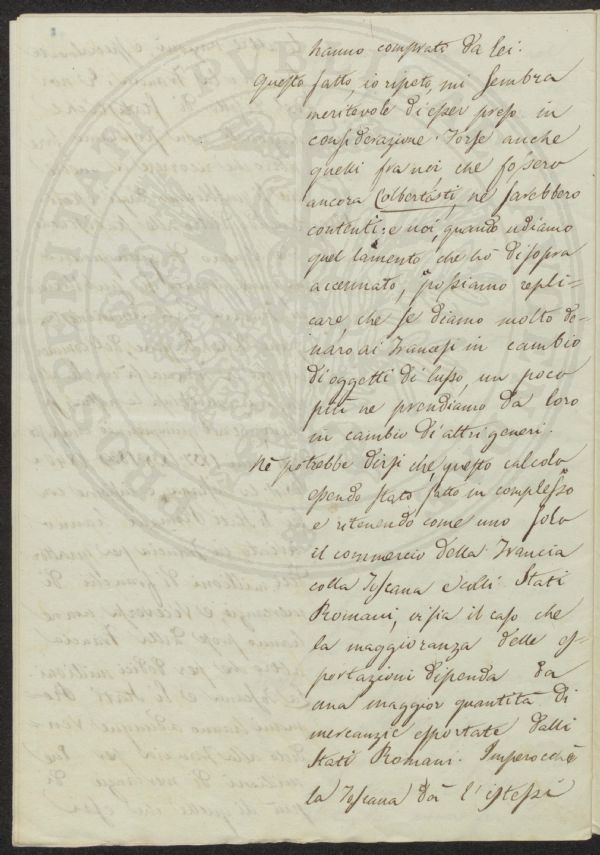 hanno comprato da lei.
Questo fatto, io ripeto, mi sembra
meritevole di esser preso in
considerazione. Forse anche
quelli fra noi che fossero
ancora Colbertisti, ne sarebbero
contenti: e noi, quando udiamo
quel lamento che hò di sopra
accennato, possiamo repli-
care, che se diamo molto de-
naro ai Francesi in cambio
di oggetti di lusso, un poco
più ne prendiamo da loro
in cambio di altri generi.
Nè potrebbe dirsi che, questo calcolo
essendo stato fatto in complesso
e ritenendo come uno solo
il commercio della Francia
colla Toscana e colli Stati
Romani, vi sia il caso che
la maggioranza delle es-
portazioni dipenda da
una maggior quantità di
mercanzie esportate dalli
Stati Romani. Imperocchè
la Toscana dà l'istessi